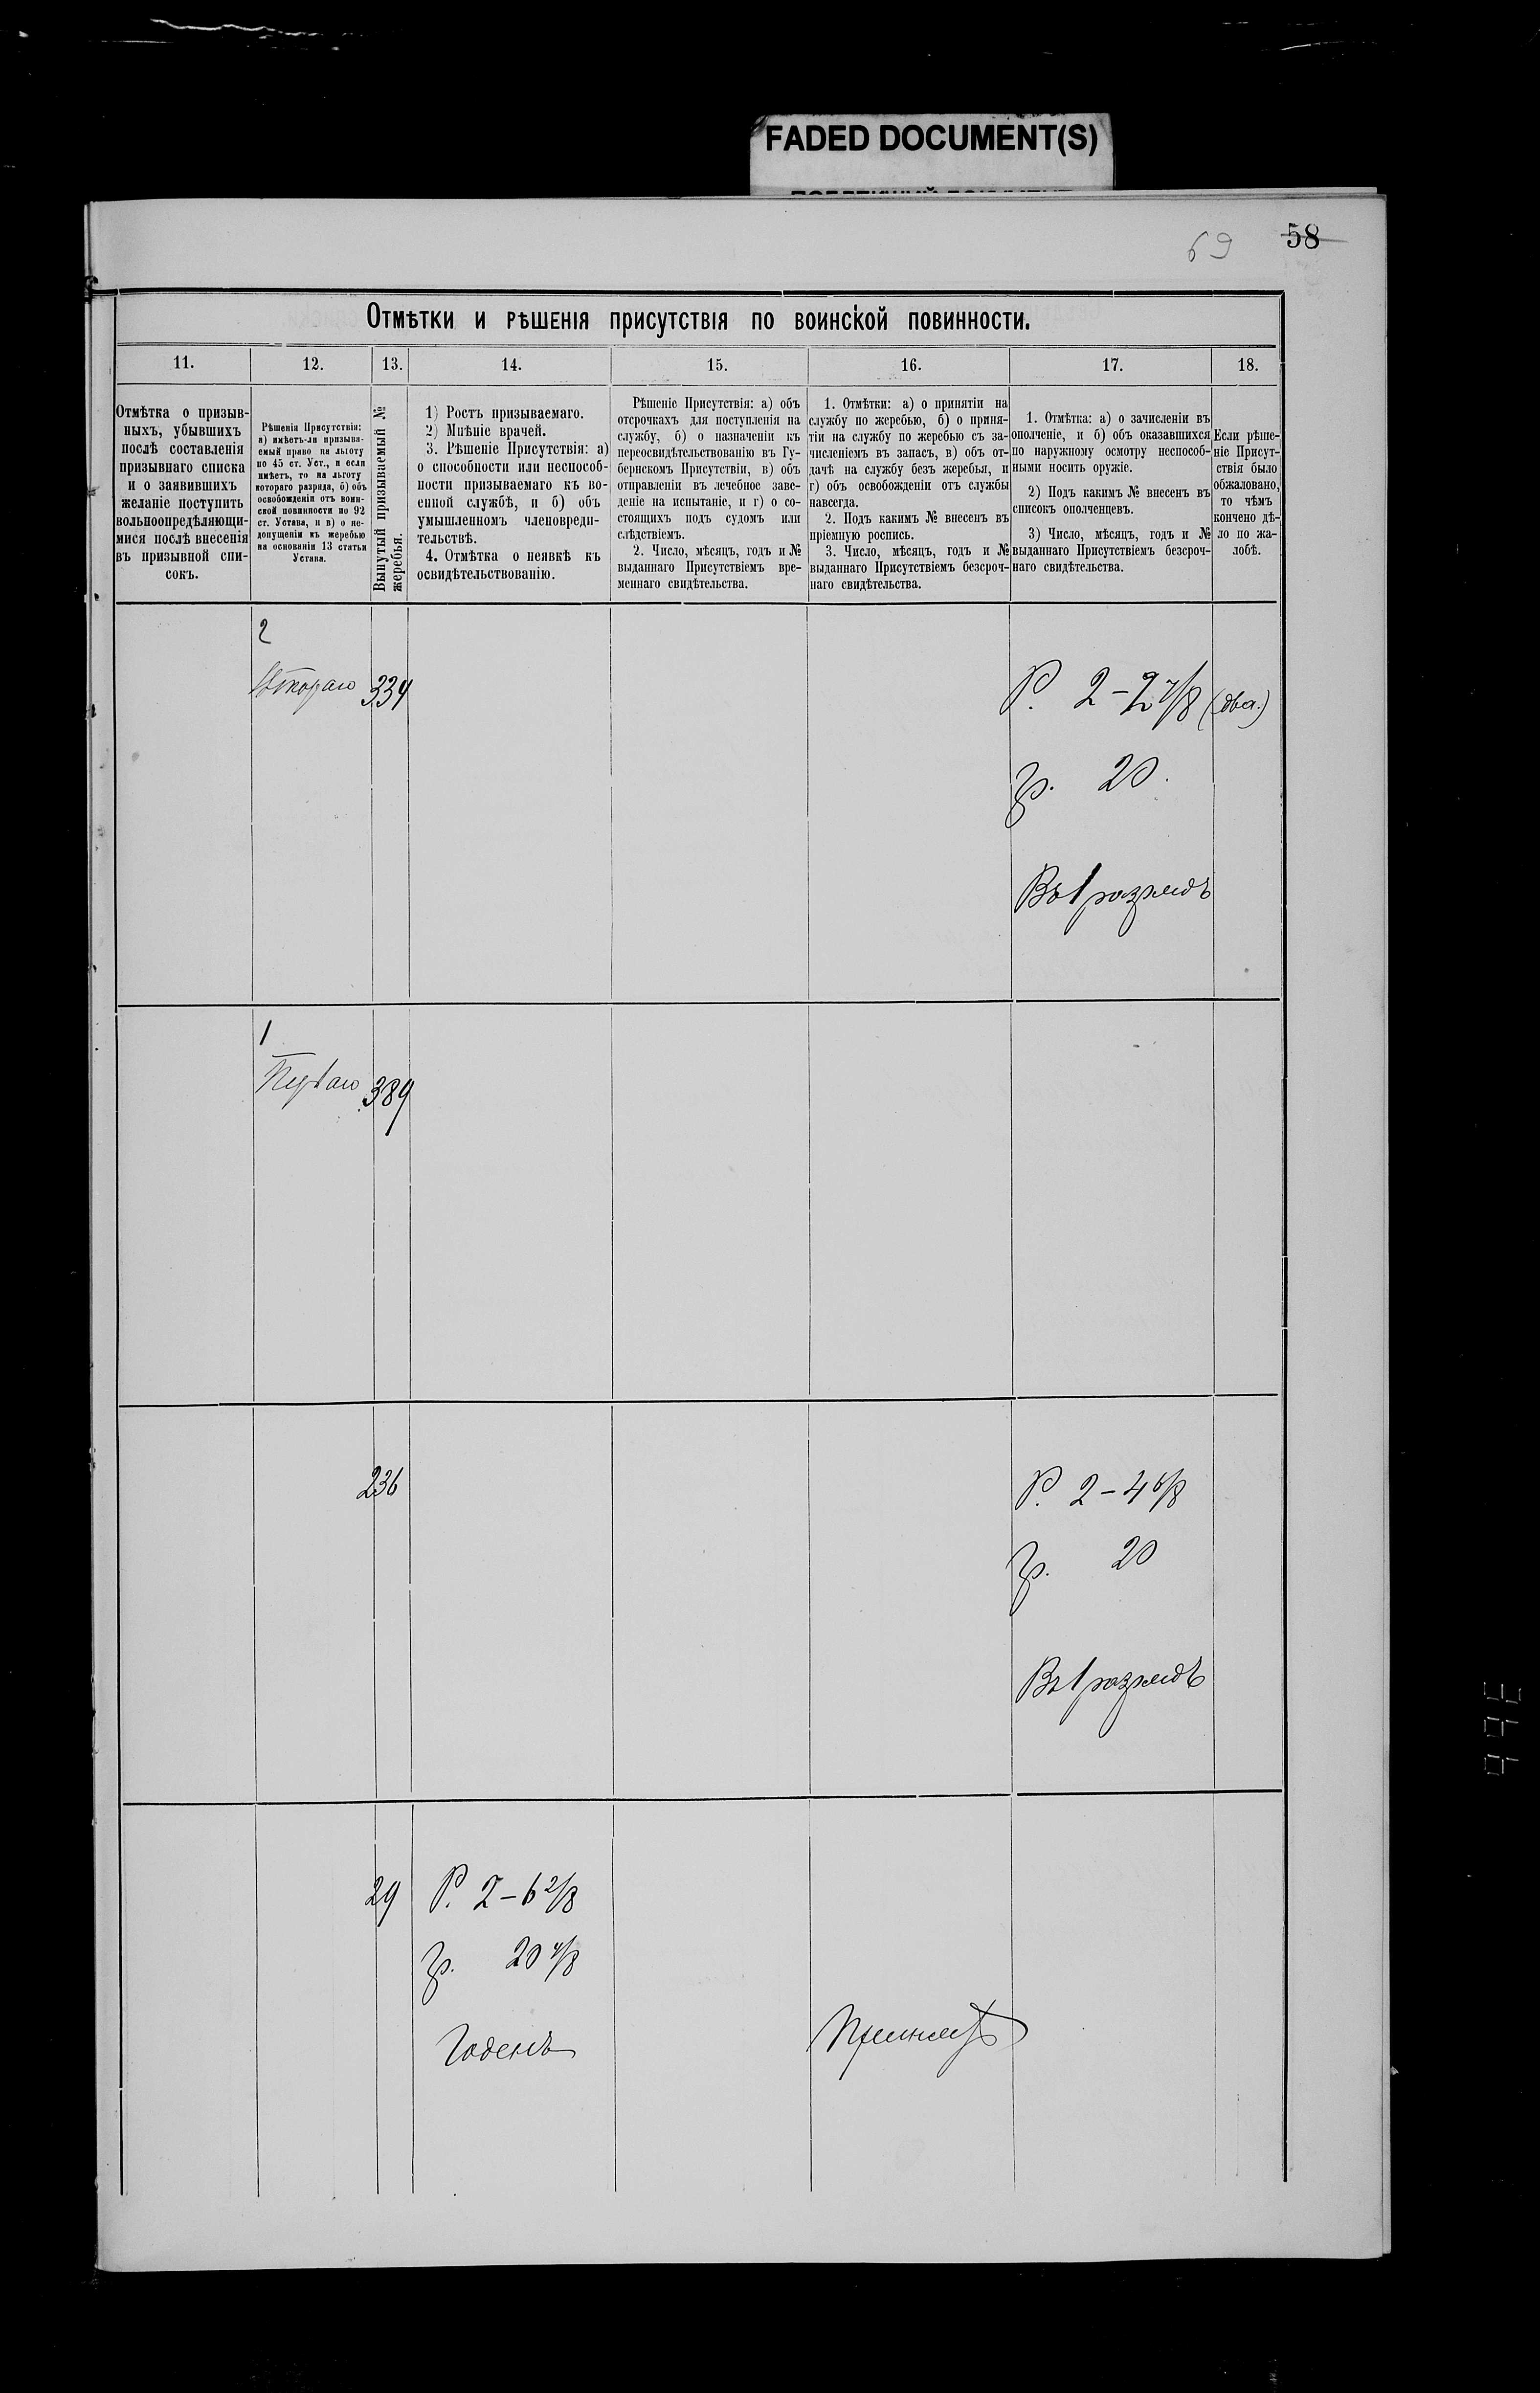 FADED DOCUMENT(S)
69 58
Отмѣтки и рѣшенія присутствія по воинской повинности.
11. 12. 13. 14. 15. 16. 17. 18.
Отмѣтка о призыв-
ныхъ, убывшихъ
послѣ составленія
призывнаго списка
и о заявившихъ
желаніе поступить
вольноопредѣляющи-
мися послѣ внесенія
въ призывной спи-
сокъ.
Рѣшенія Присутствія:
а) имѣетъ-ли призыва-
емый право на льготу
по 45 ст. Уст., и если
имѣетъ, то на льготу
котораго разряда, б) объ
освобожденіи отъ воин-
ской повинности по 92
ст. Устава, и в) о не-
допущеніи къ жеребью
на основаніи 13 статьи
Устава.
Вынутый призываемый №
жеребья.
1) Ростъ призываемаго.
2) Мнѣніе врачей.
3. Рѣшеніе Присутствія: а)
о способности или неспособ-
ности призываемаго къ во-
енной службѣ, и б) объ
умышленномъ членовреди-
тельствѣ.
4. Отмѣтка о неявкѣ къ
освидѣтельствованію.
Рѣшеніе Присутствія: а) объ
отсрочкахъ для поступленія на
службу, б) о назначеніи къ
переосвидѣтельствованію въ Гу-
бернскомъ Присутствіи, в) объ
отправленіи въ лечебное заве-
деніе на испытаніе, и г) о со-
стоящихъ подъ судомъ или
слѣдствіемъ.
2. Число, мѣсяцъ, годъ и №
выданнаго Присутствіемъ вре-
меннаго свидѣтельства.
1. Отмѣтки: а) о принятіи на
службу по жеребью, б) о приня-
тіи на службу по жеребью съ за-
численіемъ въ запасъ, в) объ от-
дачѣ на службу безъ жеребья, и
г) объ освобожденіи отъ службы
навсегда.
2. Подъ какимъ № внесенъ въ
пріемную роспись.
3. Число, мѣсяцъ, годъ и №
выданнаго Присутствіемъ безсроч-
наго свидѣтельства.
1. Отмѣтка: а) о зачисленіи въ
ополченіе, и б) объ оказавшихся
по наружному осмотру неспособ-
ными носить оружіе.
2) Подъ какимъ № внесенъ въ
списокъ ополченцевъ.
3) Число, мѣсяцъ, годъ и №
выданнаго Присутствіемъ безсроч-
наго свидѣтельства.
Если рѣше-
ніе Присут-
ствія было
обжаловано,
то чѣмъ
кончено дѣ-
ло по жа-
лобѣ.
2
Втораго 334
Р. 2-2 7/8 (два.)
гр. 20.
Въ 1 разрядъ
1
Перваго 389
236
Р. 2-4 6/8
гр. 20
Въ 1 разрядъ
29
Р. 2-6 2/8
гр. 20 4/8
Годенъ
Принятъ